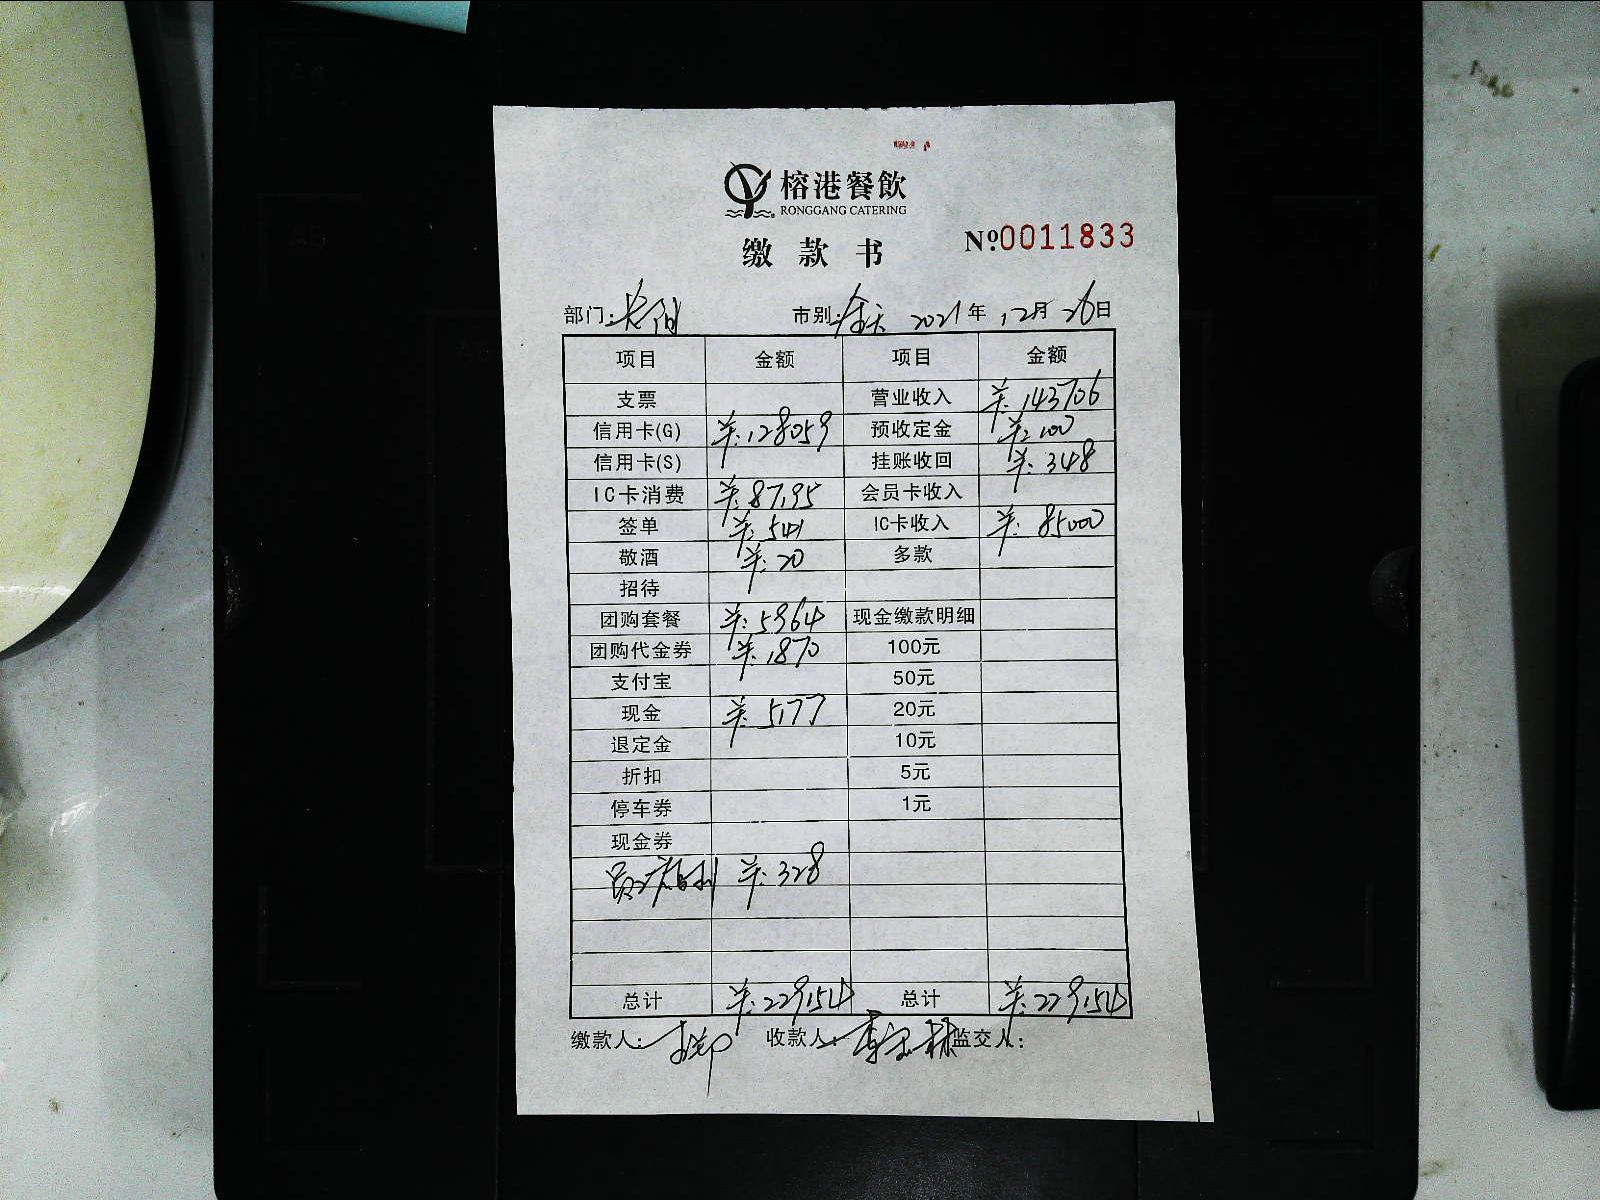 榕港餐飲
RONGGANG CATERING
缴款书 Nº0011833
部门:长阳 市别:全天 2021年12月26日
项目 金额 项目 金额
支票 营业收入 ¥:143706
信用卡(G) ¥:128059 预收定金 ¥:100
信用卡(S) 挂账收回 ¥:348
IC卡消费 ¥:87195 会员卡收入
签单 ¥:541 IC卡收入 ¥:85000
敬酒 ¥:20 多款
招待
团购套餐 ¥:5964 现金缴款明细
团购代金券 ¥:1870 100元
支付宝 50元
现金 ¥:5177 20元
退定金 10元
折扣 5元
停车券 1元
现金券
员工福利 ¥:328
总计 ¥:229154 总计 ¥:229154
缴款人: 收款人: 监交人: